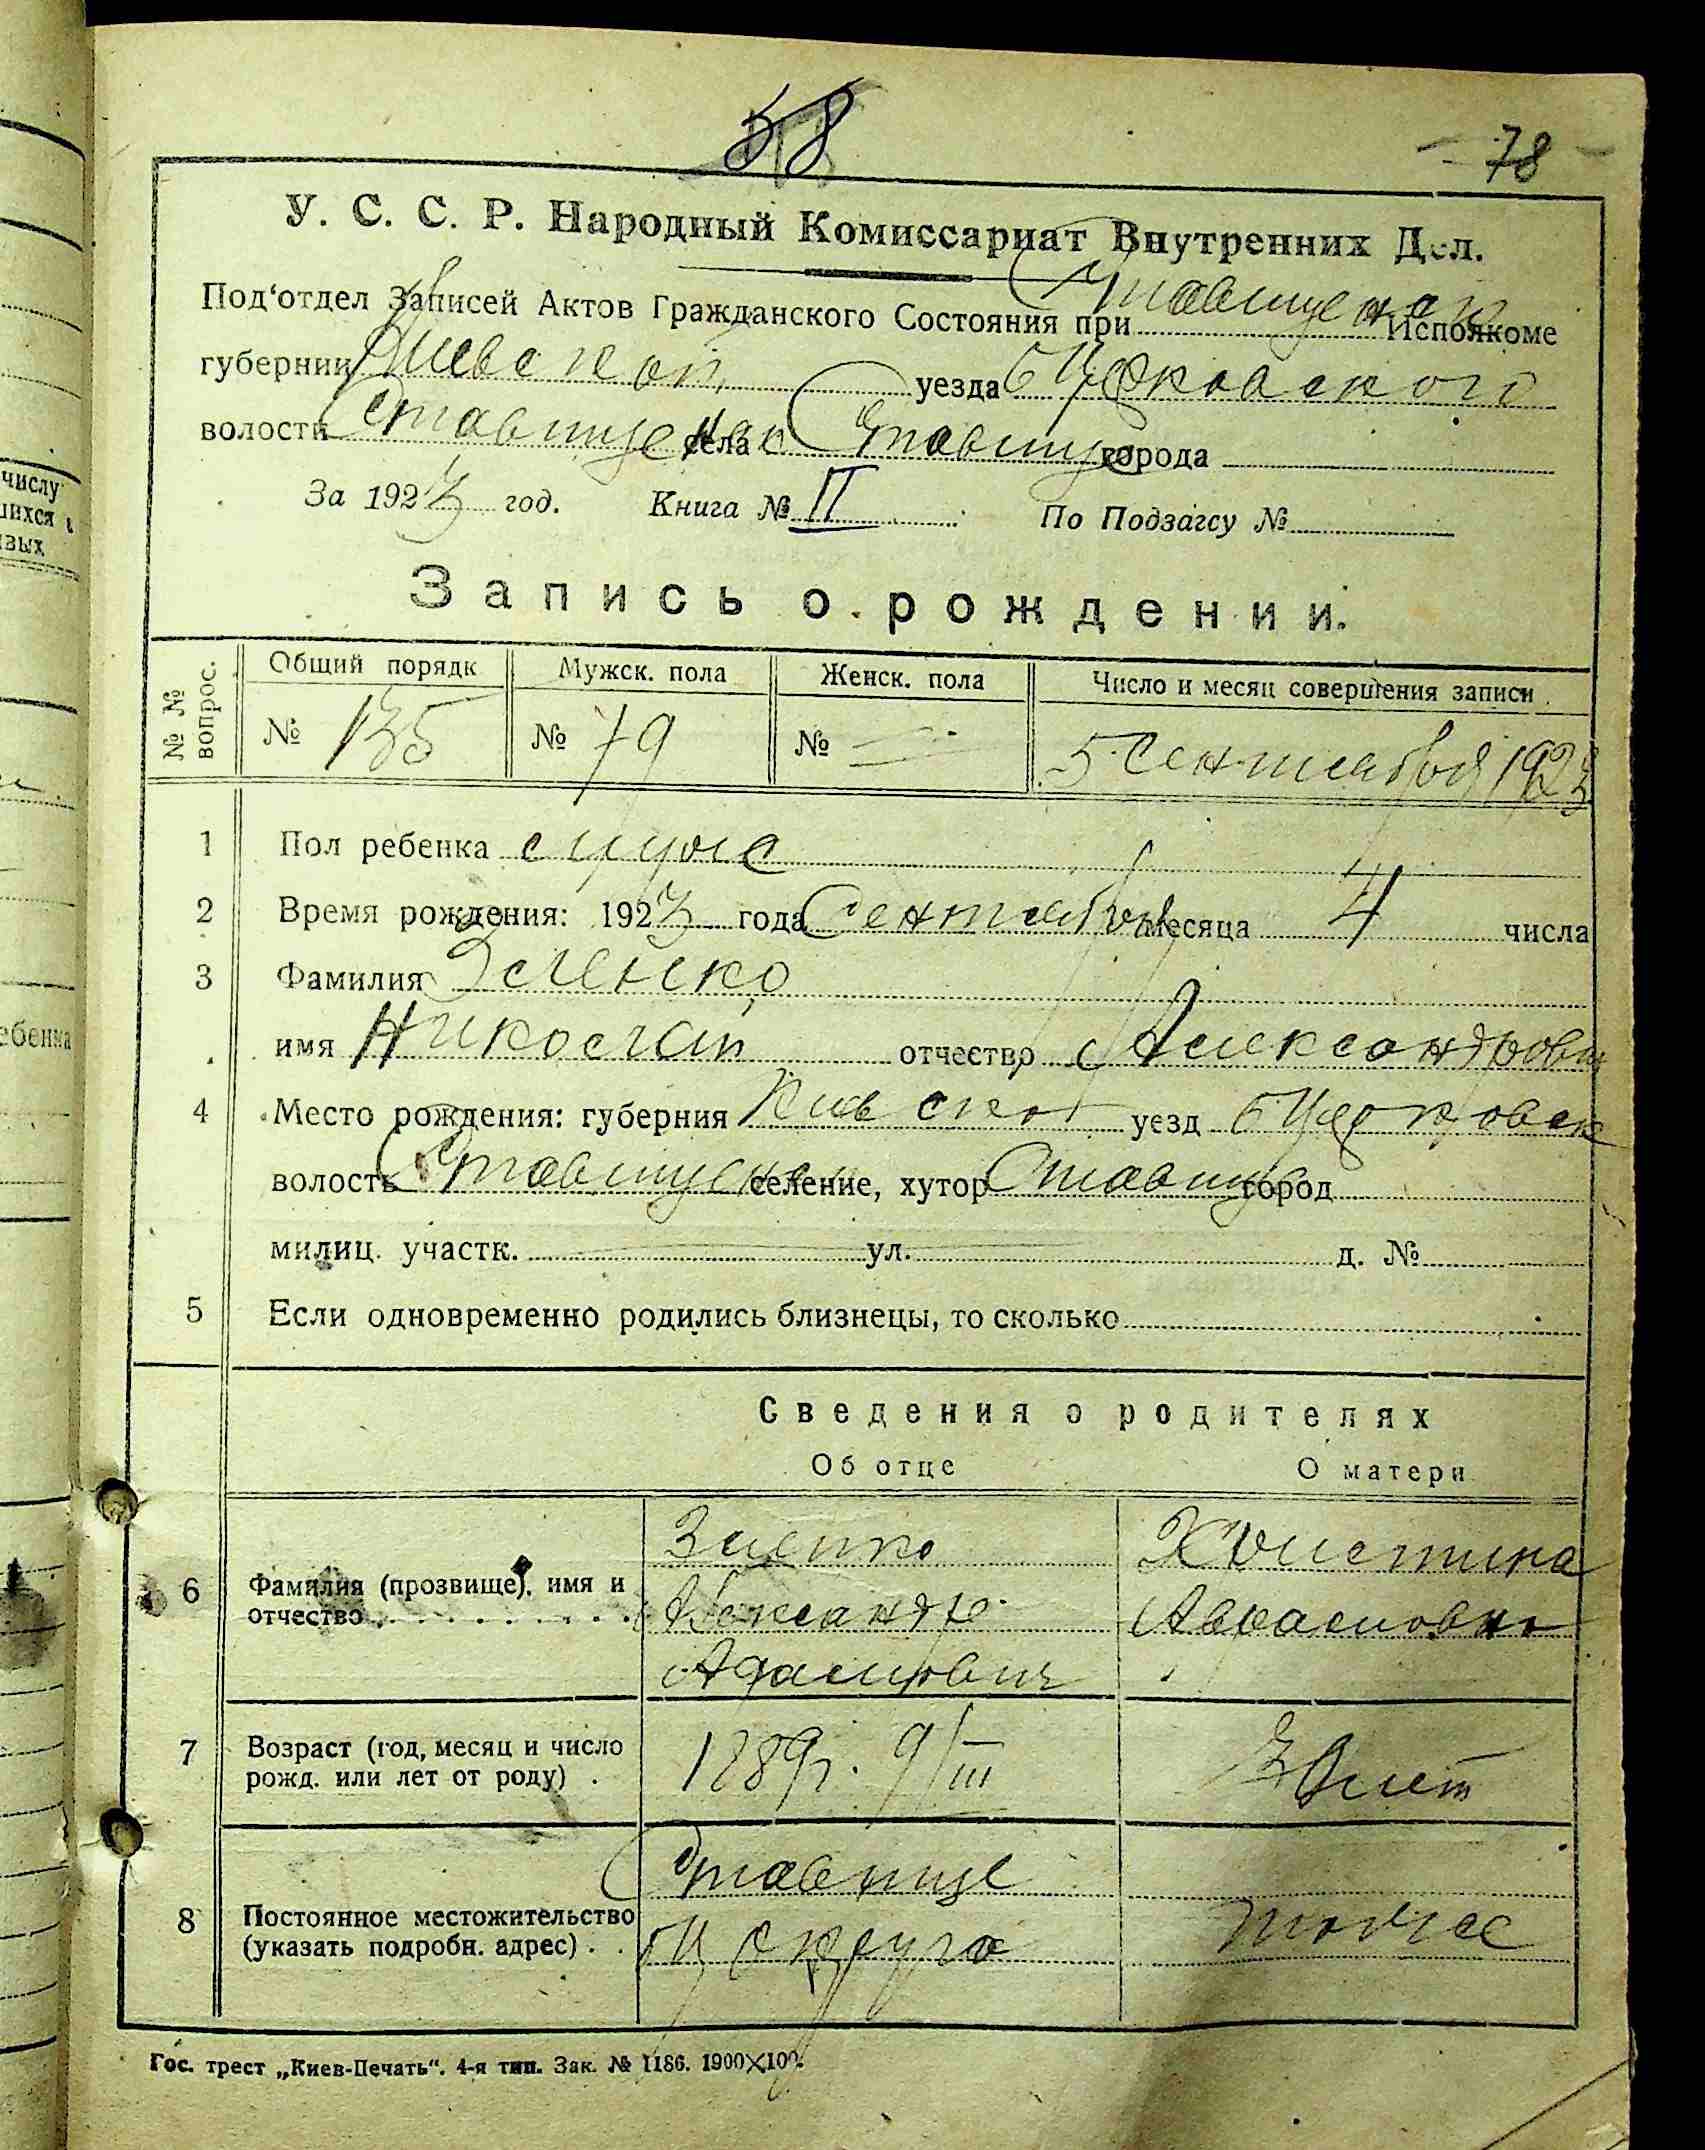 58
78
У. С. С. Р. Народный Комиссариат Внутренних Дел.
Под'отдел Записей Актов Гражданского Состояния при Ставищенск Исполкоме
губернии Киевской уезда БЦерковского
волости Ставищенск села Ставище города
За 1923 год. Книга № II По Подзагсу №
Запись о рождении.
№ № вопрос. Общий порядк Мужск. пола Женск. пола Число и месяц совершения записи
№ 135 № 79 № — 5 Сентября 1923
1 Пол ребенка муж
2 Время рождения: 1923 года Сентября месяца 4 числа
3 Фамилия Зленко
имя Николай отчество Александрович
4 Место рождения: губерния Киевско уезд БЦерковск
волость Ставищенск селение, хутор Ставище город
милиц. участк. ул. д. №
5 Если одновременно родились близнецы, то сколько
Сведения о родителях
Об отце О матери
6 Фамилия (прозвище), имя и отчество
Зленко Христина
Александр Аврамовна
Адамович
7 Возраст (год, месяц и число рожд. или лет от роду) 1889г. 9/III лет
8 Постоянное местожительство (указать подробн. адрес)
Ставище
БЦ округа тоже
Гос. трест „Киев-Печать“. 4-я тип. Зак. № 1186. 1900×100.
числу
шихся
ебенка